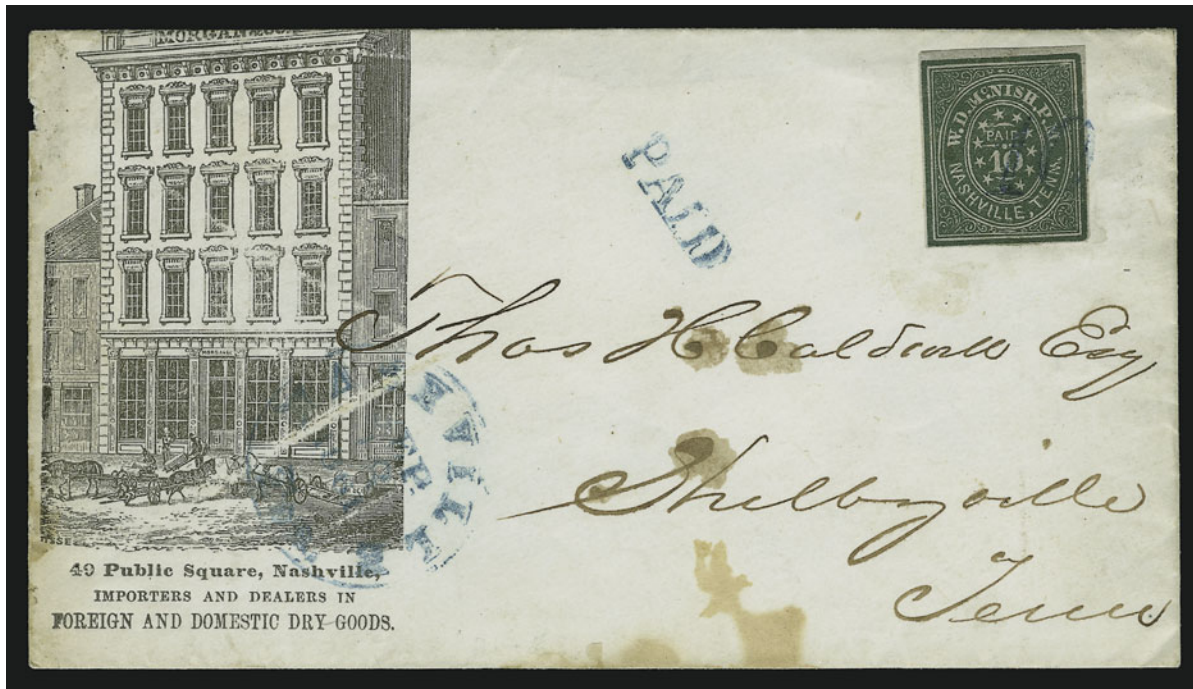 MORGAN & CO.
MORGAN & CO.
40 Public Square, Nashville,
IMPORTERS AND DEALERS IN
FOREIGN AND DOMESTIC DRY GOODS.
PAID
W. D. McNISH. P. M.
PAID
10
NASHVILLE, TENN.
10
Thos H Caldwell Esq
Shelbyville
Tenn